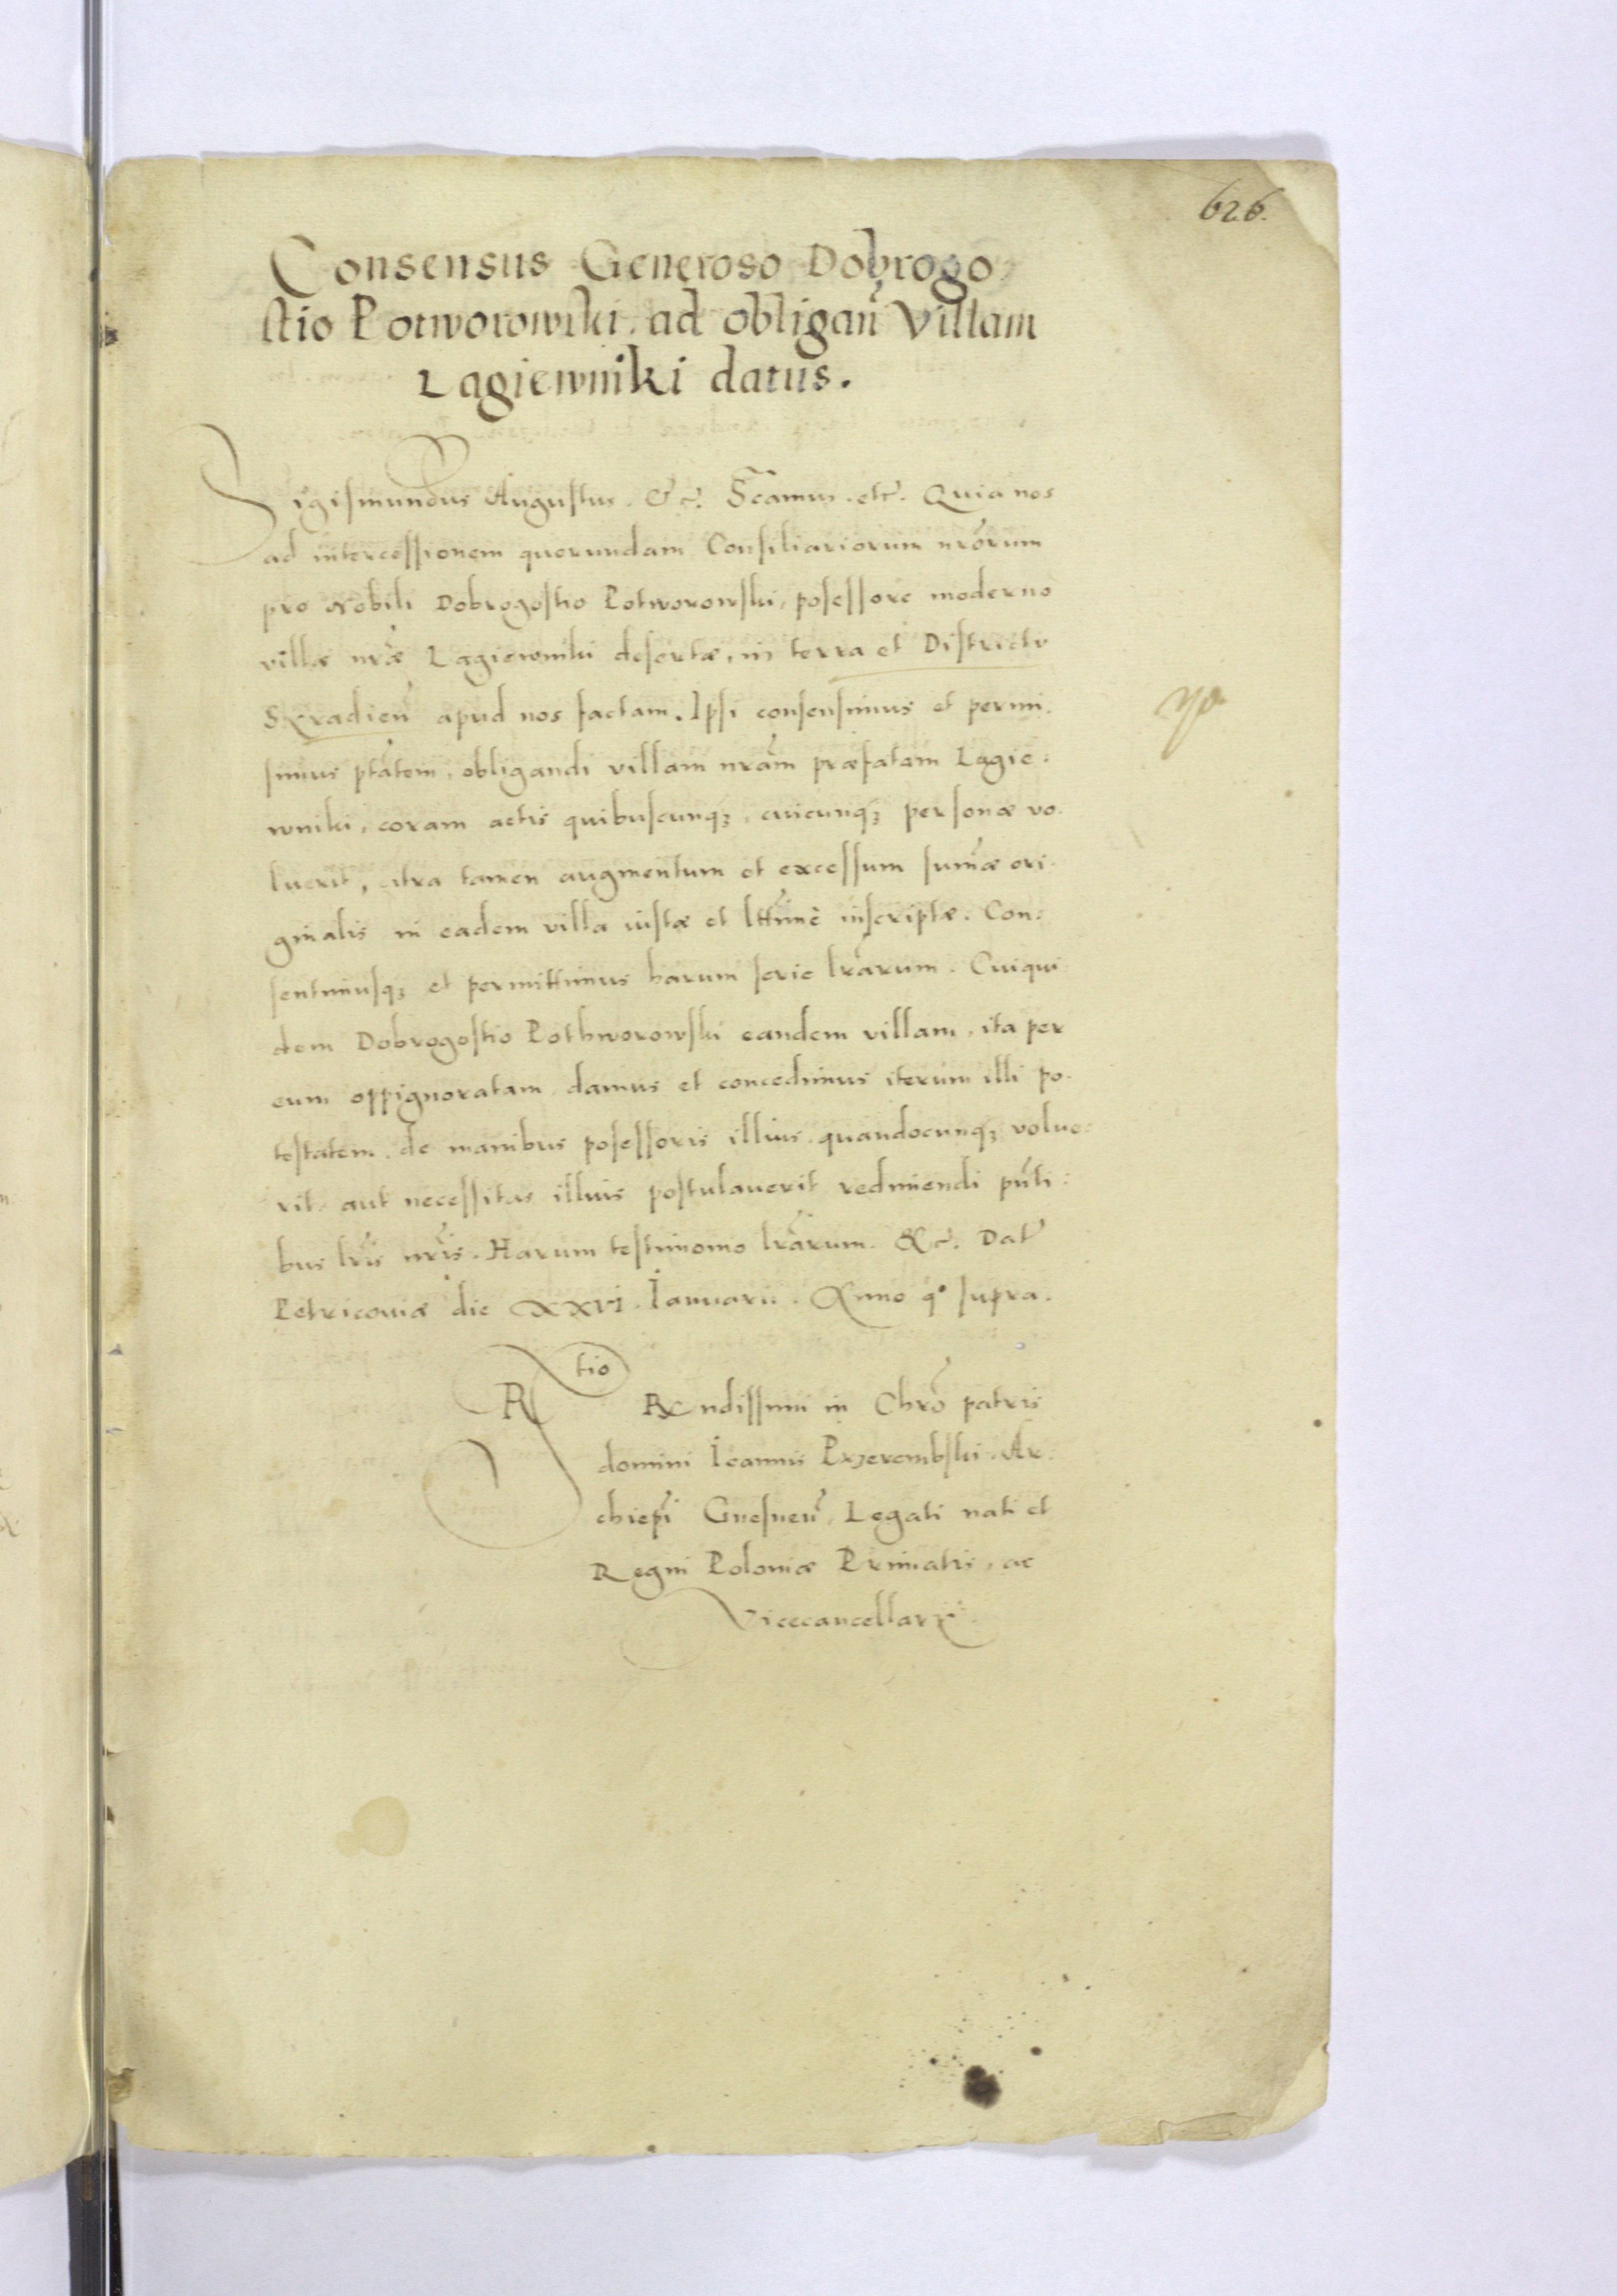 626.
Consensus Generoso Dobrogo-
stio Potworowski. ad obligan̄ Villam
Lagiewniki datus.
Sigismundus Augustus. &c. S̄camus. etc. Quia nos
ad intercessionem quorundam Consiliariorum nr̄orum
pro Nobili Dobrogostio Potworowski, posessore moderno
villæ nr̄æ Lagiewniki desertæ, in terra et Districtu
Syradien̄ apud nos factam. Ipsi consensimus et permi-
simus ptātem, obligandi villam nrām præfatam Lagie:
wniki, coram actis quibuscunqꝫ, cuicunqꝫ personæ vo-
luerit, citra tamen augmentum et excessum sum̄æ ori-
ginalis in eadem villa iustæ et lttimè inscriptæ. Con:
sentimusqꝫ et permittimus harum serie lrārum. Cuiqui
dem Dobrogostio Pothworowski eandem villam, ita per
eum oppignoratam, damus et concedimus iterum illi po-
testatem. de manibus posessoris illius. quandocunqꝫ volue:
rit. aut necessitas illius postulauerit redimendi pn̄ti:
bus lrīs nrīs. Harum testimonio lrārum. &c. Dat̄
Petricouiæ die XXVI. Ianuarii. Anno qº supra.
Rtio
Rxndissimi in Chrō patris
domini Ioannis Przerembski. Ar-
chiep̄i Gnesnen̄, Legati nati et
Regni Poloniæ Primatis, ac
Vicecancellarii.